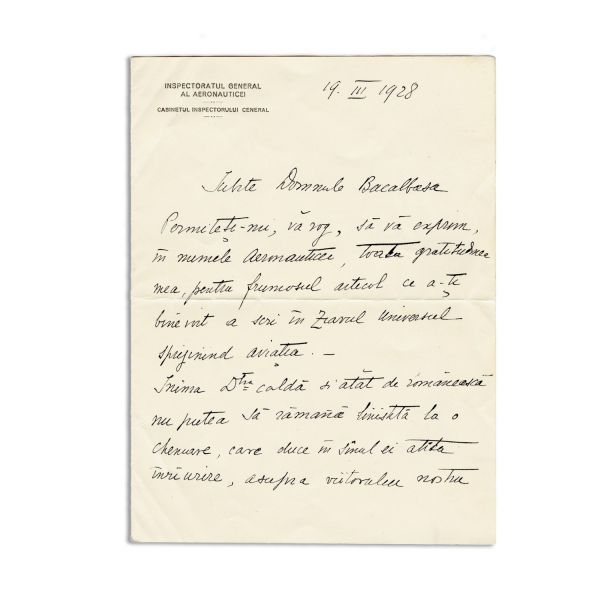 INSPECTORATUL GENERAL
AL AERONAUTICEI
CABINETUL INSPECTORULUI GENERAL
19. III 1928
Iubite Domnule Bacalbașa
Permiteți-mi, vă rog, să vă exprim,
în numele Aeronauticei, toată gratitudinea
mea, pentru frumosul articol ce a-ți
bine voit a scri în Ziarul Universul
spriginind aviația. —
Inima Dtră caldă și atât de românească
nu putea să rămână liniștită la o
chemare, care duce în sînul ei atâta
înrâurire, asupra viitorului nostru